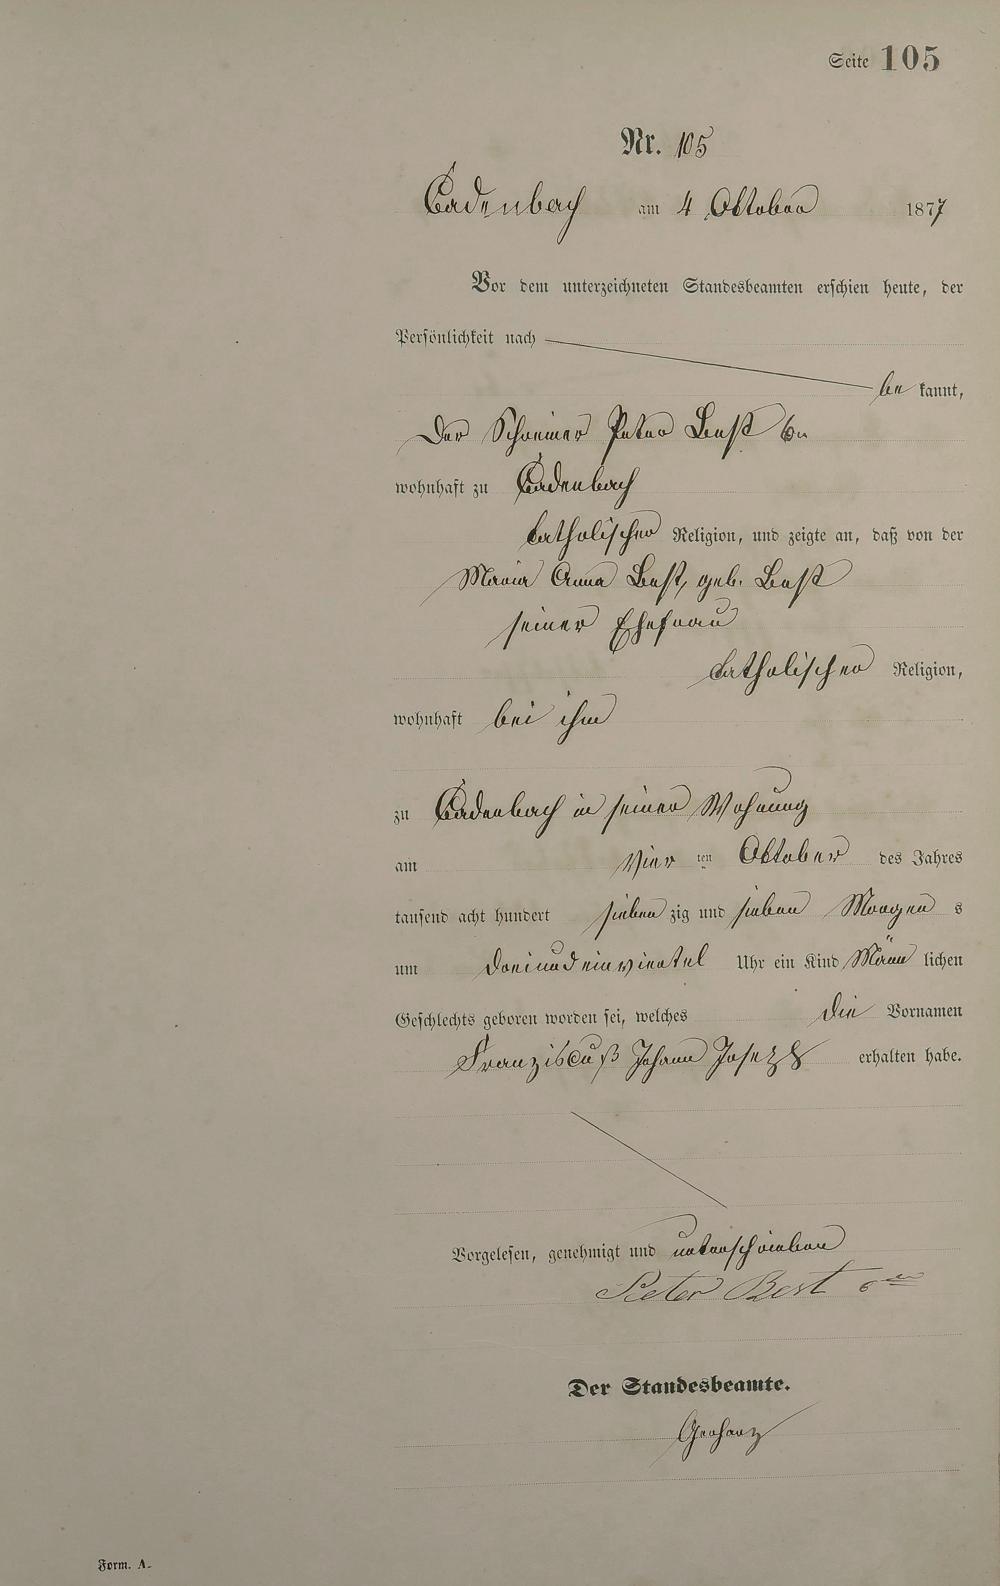 Seite 105
Nr. 105
Cadenbach am 4 Oktober 1877
Vor dem unterzeichneten Standesbeamten erschien heute, der
Persönlichkeit nach
be kannt,
Der Schreiner Peter Best 6n
wohnhaft zu Cadenbach
katholischer Religion, und zeigte an, daß von der
Maria Anna Best, geb. Best
seiner Ehefrau
katholischer Religion,
wohnhaft bei ihm
zu Cadenbach in seiner Wohnung
am vier ten Oktober des Jahres
tausend acht hundert sieben zig und sieben Morgen s
um dreiundeinviertel Uhr ein Kind Männ lichen
Geschlechts geboren worden sei, welches die Vornamen
Franziscuß Johann Joseph erhalten habe.
Vorgelesen, genehmigt und unterschrieben
Peter Best 6ten
Der Standesbeamte.
Gerharz
Form. A.